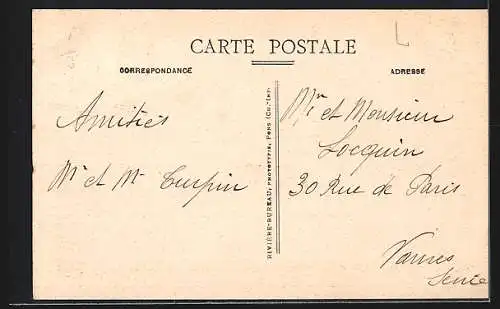 CARTE POSTALE
CORRESPONDANCE
ADRESSE
Amitiés
Mr et Me Turpin
RIVIÈRE-BUREAU, PHOTOTYPIE, PONS (CH.-INF.
Mme et Monsieur
Locquin
30 Rue de Paris
Vanves
Seine